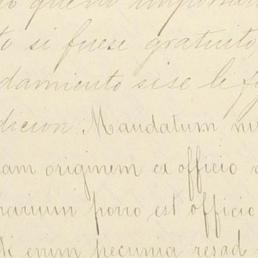 que no importa
to si fuese gratuito,
damiento si se le f
dicion. Mandatum nu
am originem ex officio
narium porro est officio
Si enim pecunia